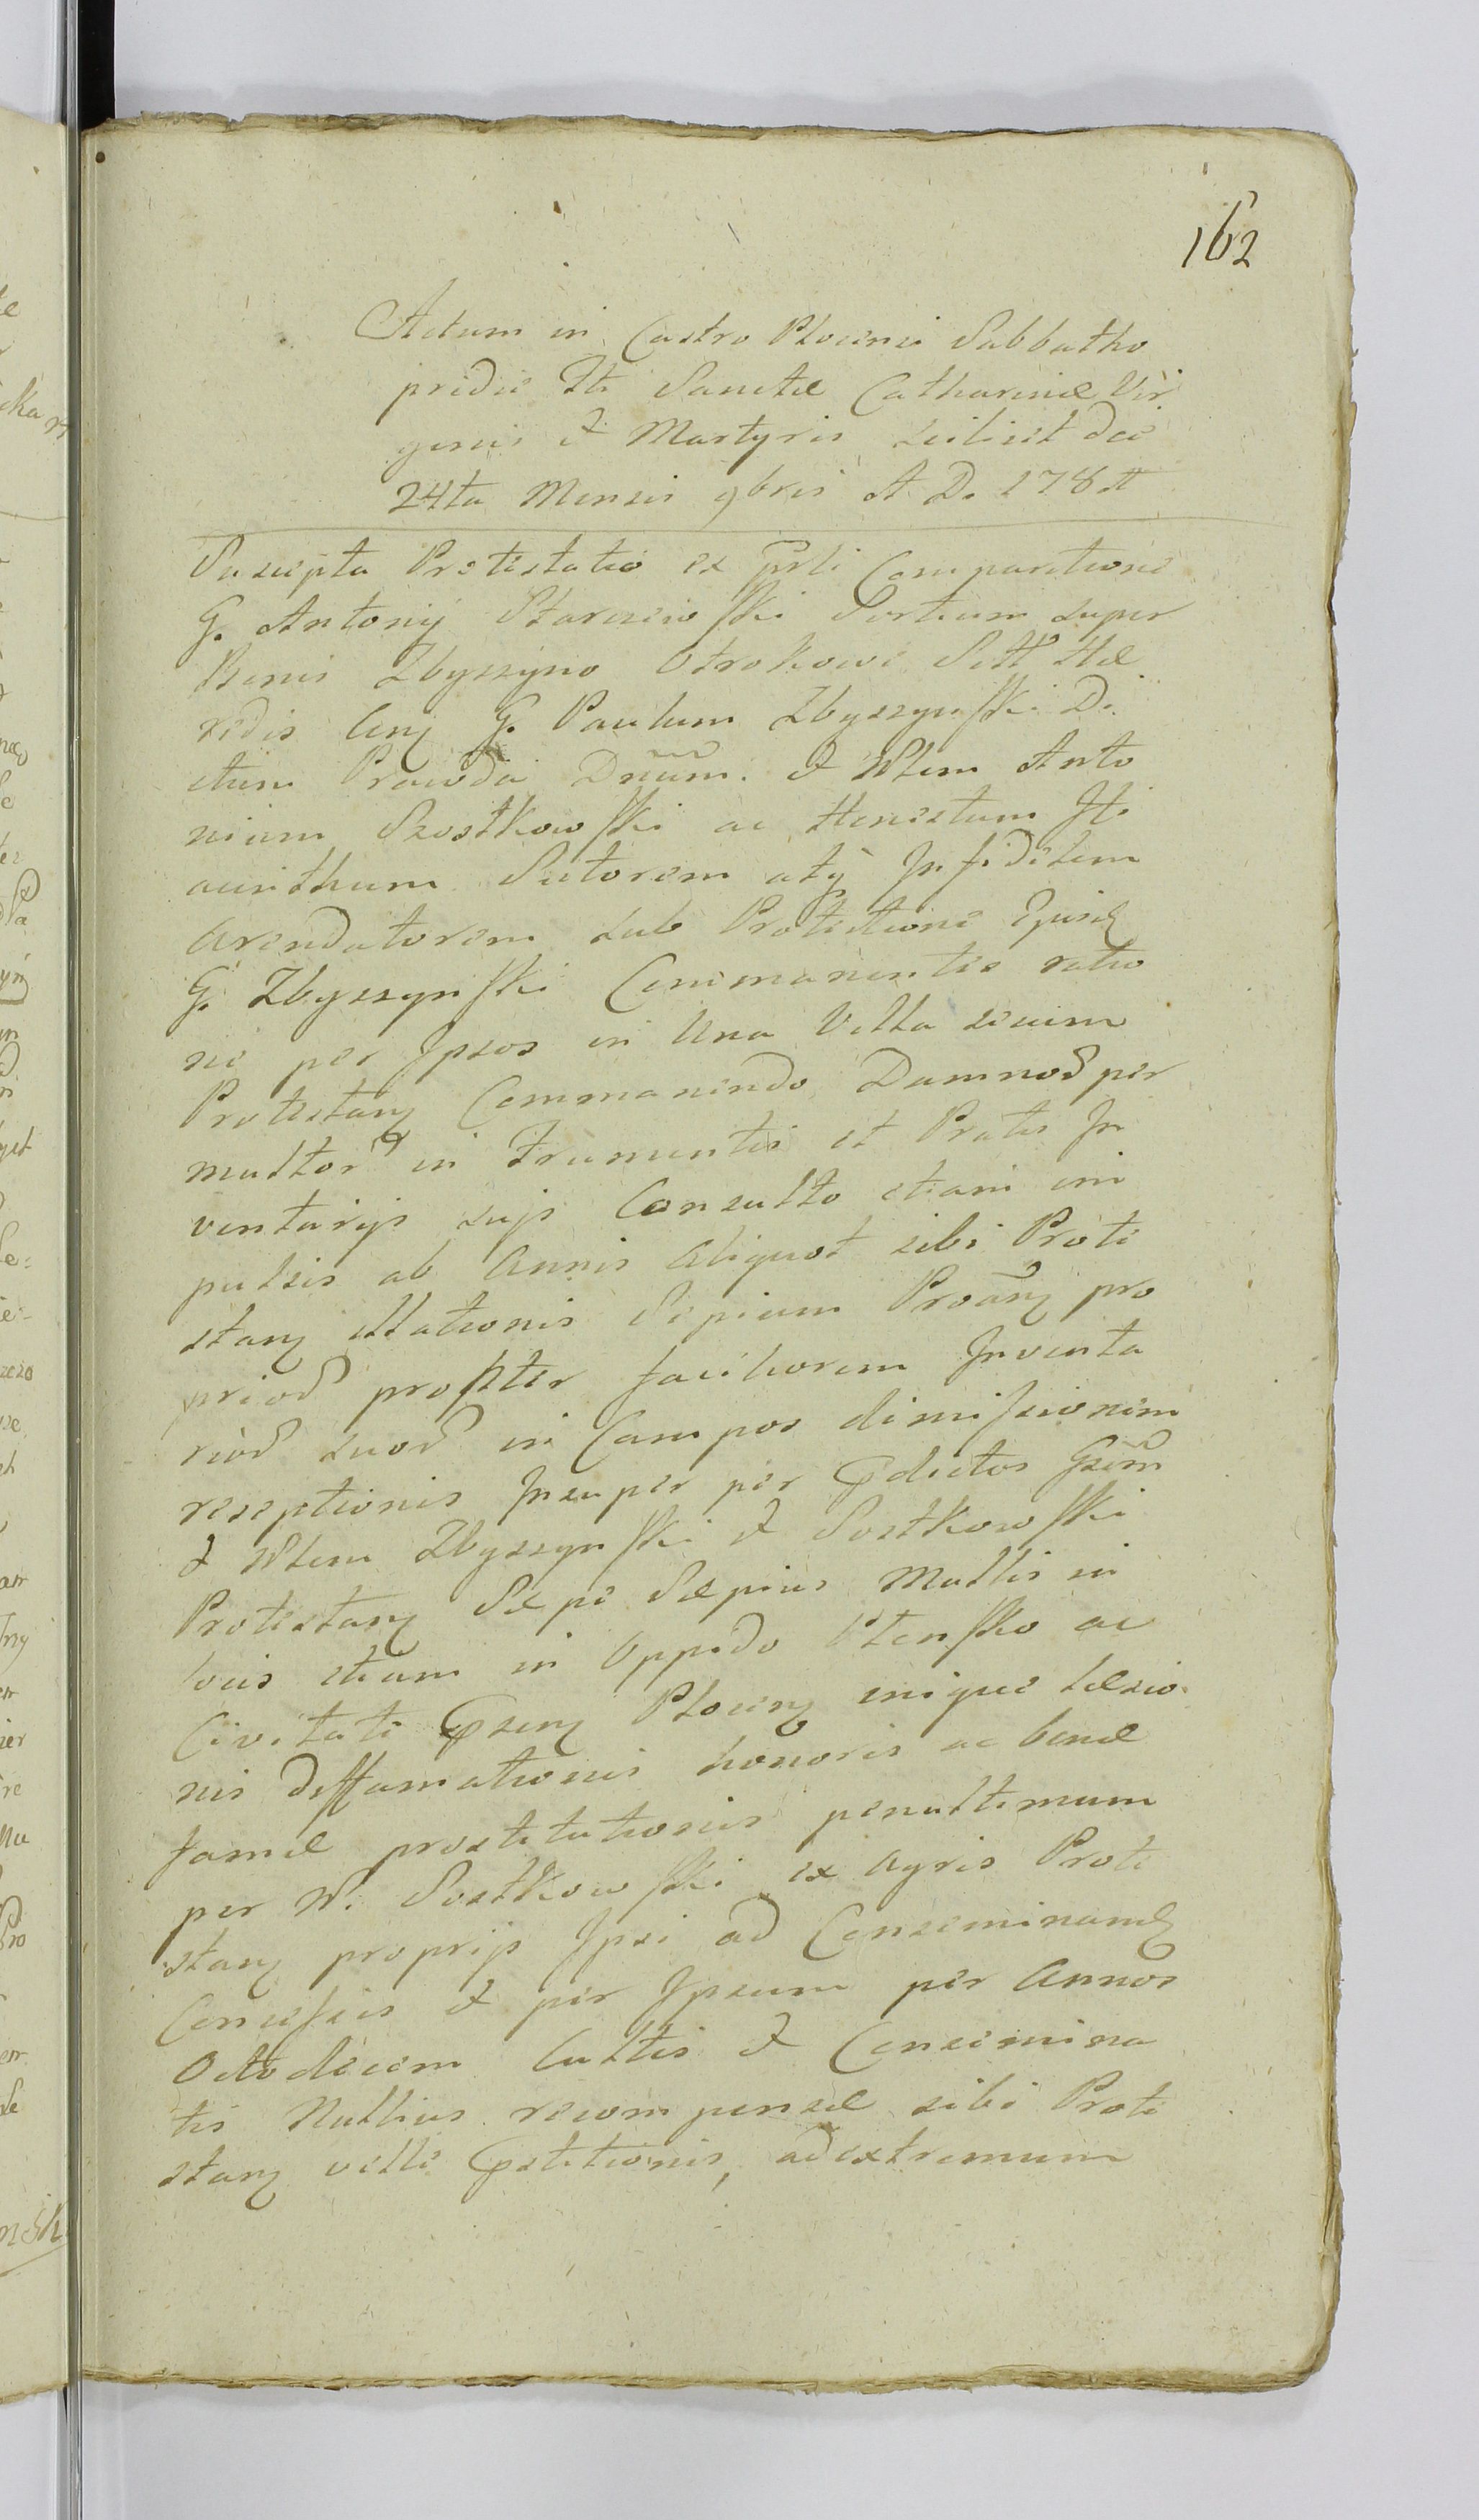 162
Actum in Castro Plocensi Sabbatho
pridie tti Sanctæ Catharinæ Vir
ginis et Martyris scilicet die
24ta Mensis 9bris A. D. 178
Suscepta Protestatio ex prsti Comparitione
G. Antonij Starczewski Sortium super
Bonis Zbyszyno Otrokowe Sitt Hæ
redis Cnꝫ G. Paulum Zbyszynski Di
ctum Prawda Dnum. et Nlem Anto
nium Szostkowski ac Honestum Hi
acinthum Sutorem atqꝫ Infidelem
Arendatorem sub Protectione Ejusdꝫ
G. Zbyszynski Commanentes ratio
ne per Ipsos in Una Villa secum
Protestanꝫ Commanendo Damnoꝝ per
multoꝝ in Frumentis et Pratis In
ventarijs sujs Consulto etiam im
pulsis ab Annis Aliquot sibi Prote
stanꝫ illationis Sepium Proanꝫ pro
prioꝝ propter faciliorem Inventa
rioꝝ suoꝝ in Campos dimissionem
receptionis Insuper per Pdictos Gsem
et Nlem Zbyszynski et Sostkowski
Protestanꝫ Sæpe Sæpius Multis in
locis etiam in Oppido Plonsko ac
Civitate Psenꝫ Plocenꝫ inique læsio
nis deffamationis honoris ac bonæ
famæ prostitutionis penultimum
per N. Sostkowski ex Agris Prote
stanꝫ proprijs Ipsi ad Conseminandꝫ
Concessis et per Ipsum per Annos
Octodecem Cultis et Consemina
tis Nullius recompensæ sibi Prote
stanꝫ velle Pstitionis, ad extremum